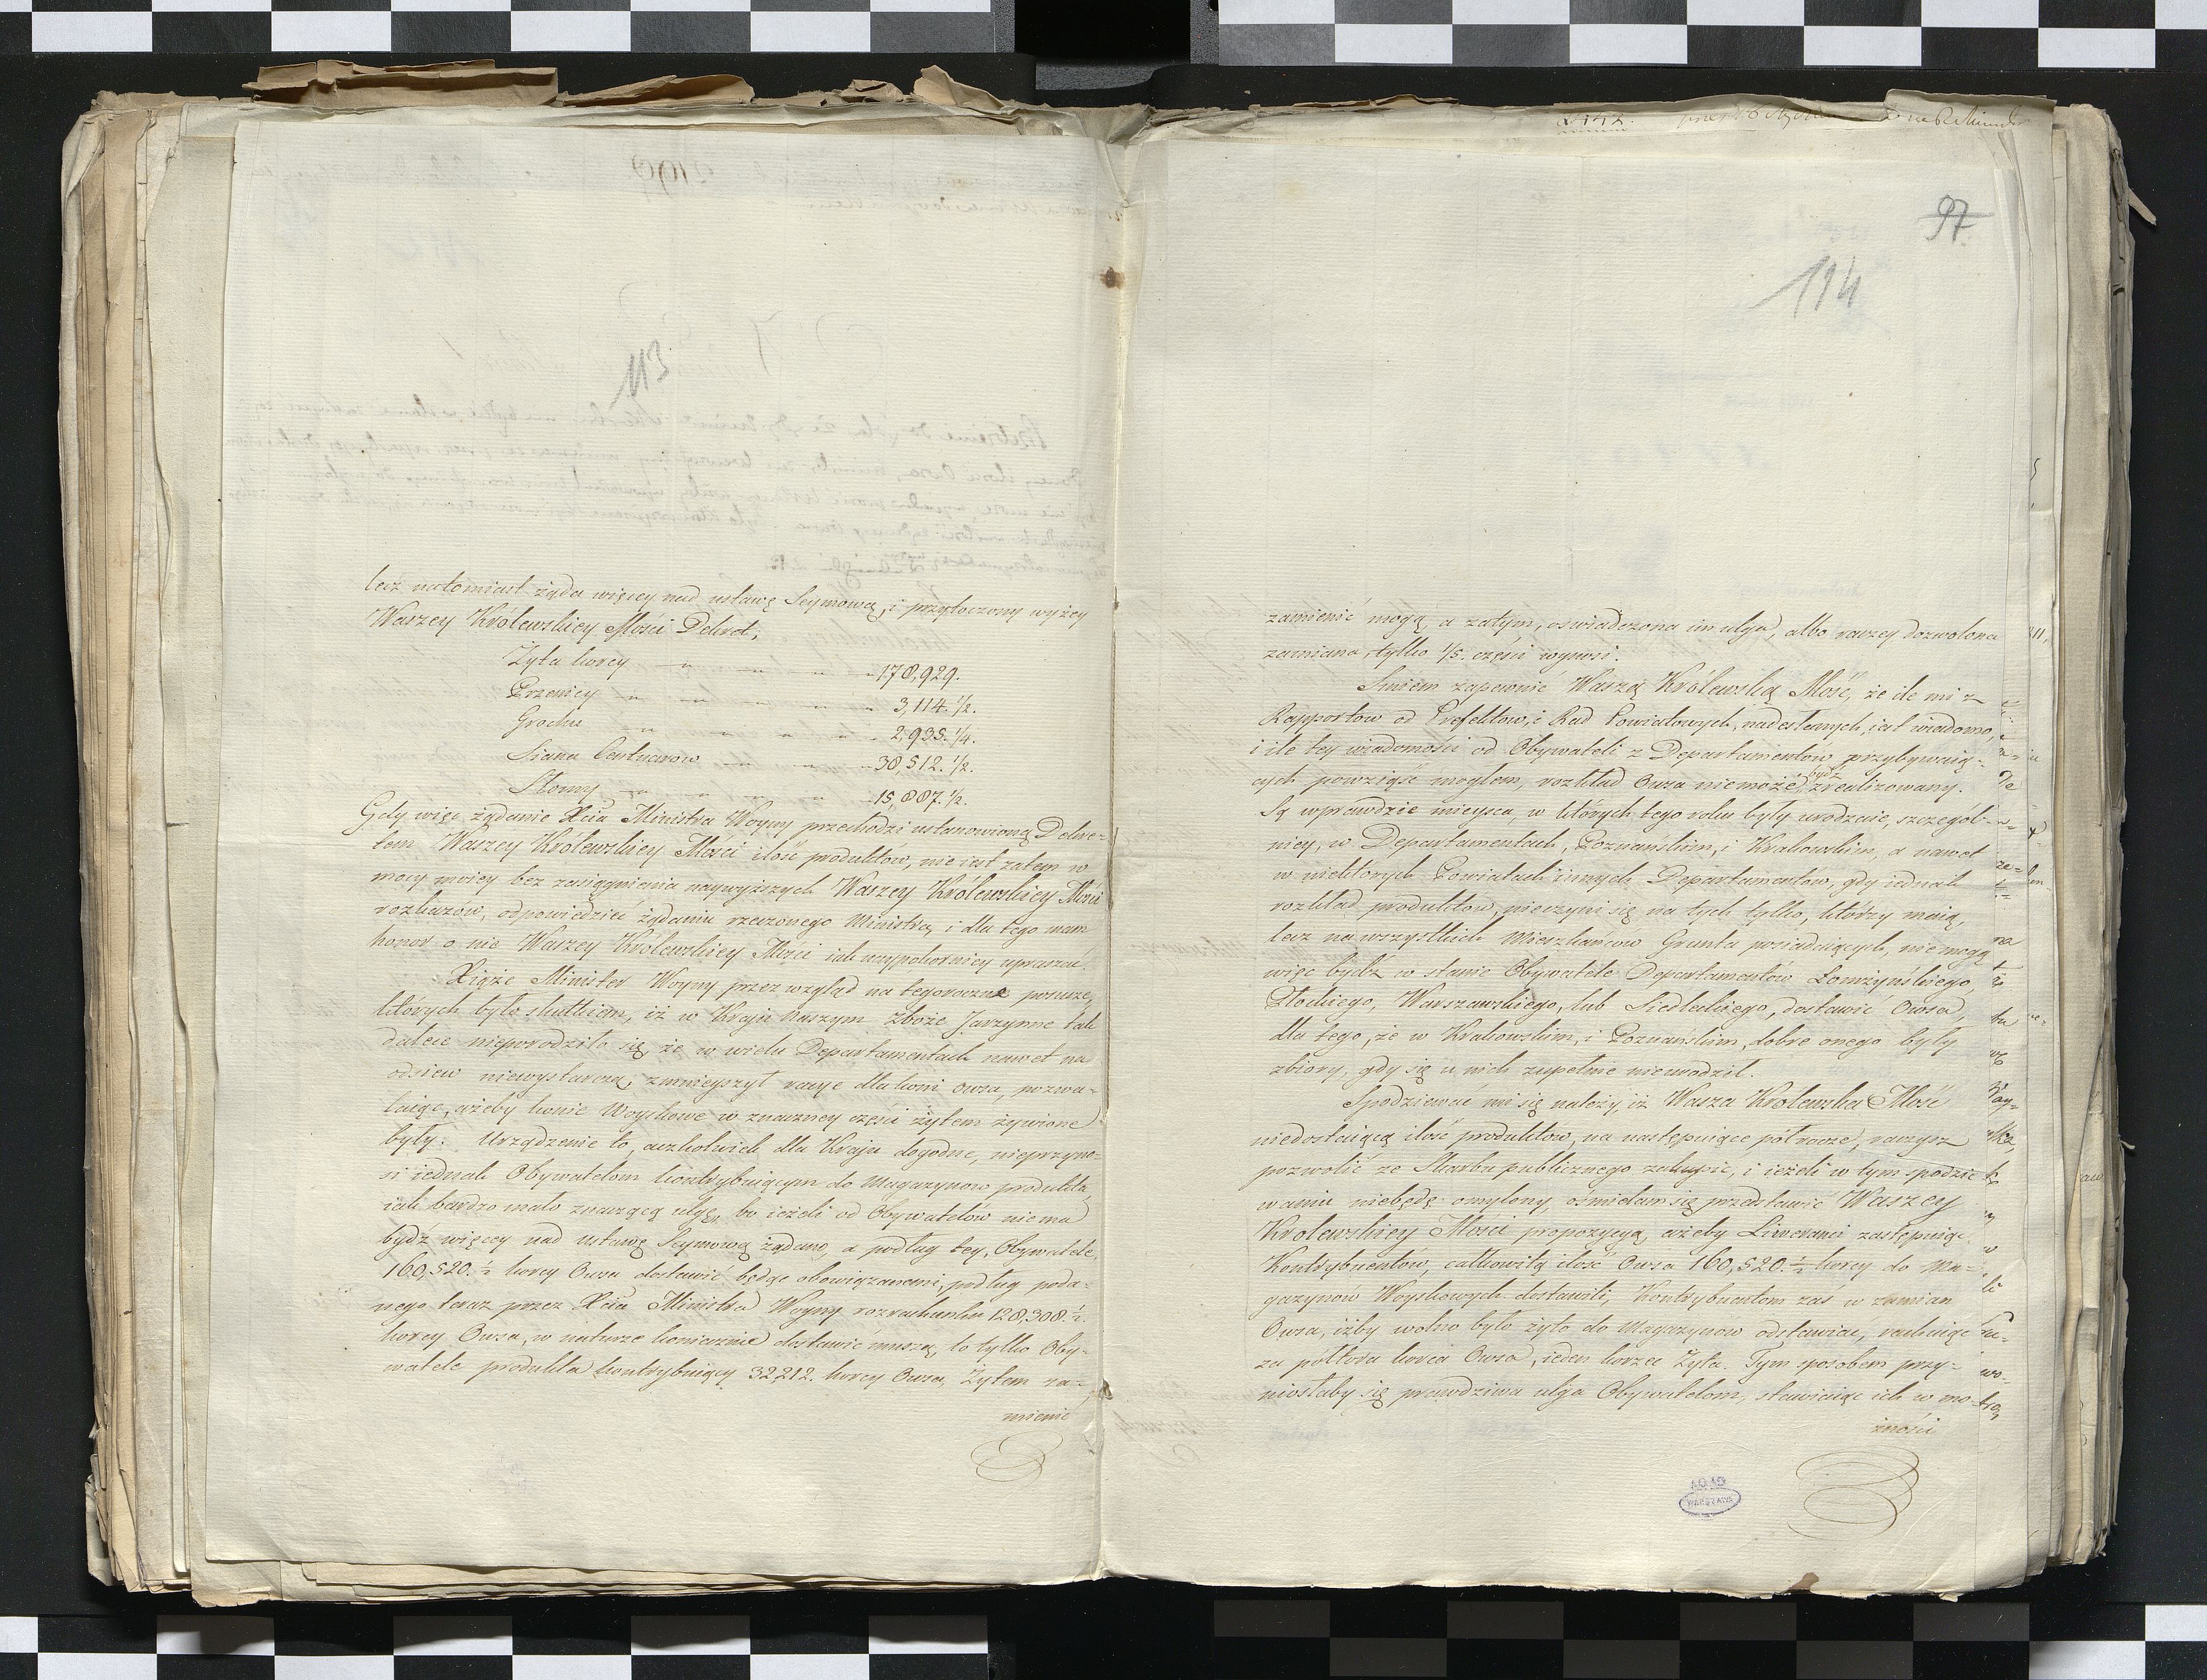 113
lecz natomiast żąda więcey nad ustawę Seymową, i przytoczony wyżey
Waszey Królewskiey Mości Dekret,
Żyta korcy 178,929.
Pszenicy 3,114.1/2.
Grochu 2,935.1/4.
Siana Centnarow 38,512.1/2.
Słomy 15,887.1/2.
Gdy więc żądanie Xcia Ministra Woyny przechodzi ustanowioną Dekre-
tem Waszey Królewskiey Mości ilość produktów, nie iest zatem w
mocy moiey bez zasiągnienia naywyższych Waszey Królewskiey Mości
rozkazów, odpowiedzieć żądaniu rzeczonego Ministra, i dla tego mam
honor o nie Waszey Królewskiey Mości iak naypokorniey upraszać.
Xiąże Minister Woyny przez wzgląd na tegoroczne posusze,
których było skutkiem, iż w Kraju naszym Zboże Jarzynne tak
dalece nieporodziło się, że w wielu Departamentach nawet na
odsiew niewystarczą, zmnieyszył racye dla koni owsa, pozwa-
laiąc, ażeby konie Woyskowe w znaczney części żytem żywione
były. Urządzenie to, aczkolwiek dla Kraju dogodne, nieprzyno-
si iednak Obywatelom kontrybuiącym do Magazynow produkta,
iak bardzo mało znaczącą ulgę, bo ieżeli od Obywatelów niema
bydź więcey nad ustawę Seymową żądano, a podług tey, Obywatele,
160,520.½ korcy Owsa dostawić będąc obowiązanemi, podług poda-
nego teraz przez Xcia Ministra Woyny rozrachunku 128,308.½.
korcy Owsa, w naturze koniecznie dostawić muszą, to tylko Oby-
watele produkta kontrybuiący 32,212. korcy Owsa, Żytem za-
mienić
97
114
zamienić mogą, a zatym, oswiadczona im ulga, albo raczey dozwolona
zamiana, tylko 1/5. części wynosi.
Smiem zapewnić Waszą Królewską Mość, że ile mi z
Rapportow od Prefektów, i Rad Powiatowych, nadesłanych, iest wiadomo,
i ile tey wiadomości od Obywateli z Departamentów przybywaią-
cych powziąść mogłem, rozkład Owsa niemoże bydź zrealizowany.
Są wprawdzie mieysca, w których tego roku były urodzaie, szczegól-
niey, w Departamentach, Poznańskim, i Krakowskim, a nawet
w niektórych Powiatach innych Departamentów, gdy iednak
rozkład produktow, nieczyni się na tych tylko, którzy maią,
lecz na wszystkich Mieszkańców Grunta posiadaiących, nie mogą
więc bydź w stanie Obywatele Departamentów Łomżyńskiego,
Płockiego, Warszawskiego, lub Siedleckiego, dostawić Owsa,
dla tego, że w Krakowskim, i Poznańskim, dobre onego były
zbiory, gdy się u nich zupełnie nieurodził.
Spodziewać mi się należy, iż Wasza Królewska Mość
niedostaiącą ilość produktów, na następuiące półrocze, raczysz
pozwolić ze Skarbu publicznego zakupić, i ieżeli w tym spodzie-
waniu niebędę omylony, ośmielam się przedstawić Waszey
Krolewskiey Mości propozycyą, ażeby Liweranci zastępuiąc
Kontrybuentów, całkowitą ilość Owsa 160,520.½ korcy do Ma-
gazynów Woyskowych dostawili, Kontrybuentom zaś w zamian
Owsa, iżby wolno było żyto do Magazynów odstawiać, rachuiąc
za półtora korca Owsa, ieden korzec Żyta. Tym sposobem przy-
niosłaby się prawdziwa ulga Obywatelom, stawiaiąc ich w mo-
żności
AGAD
WARSZAWA